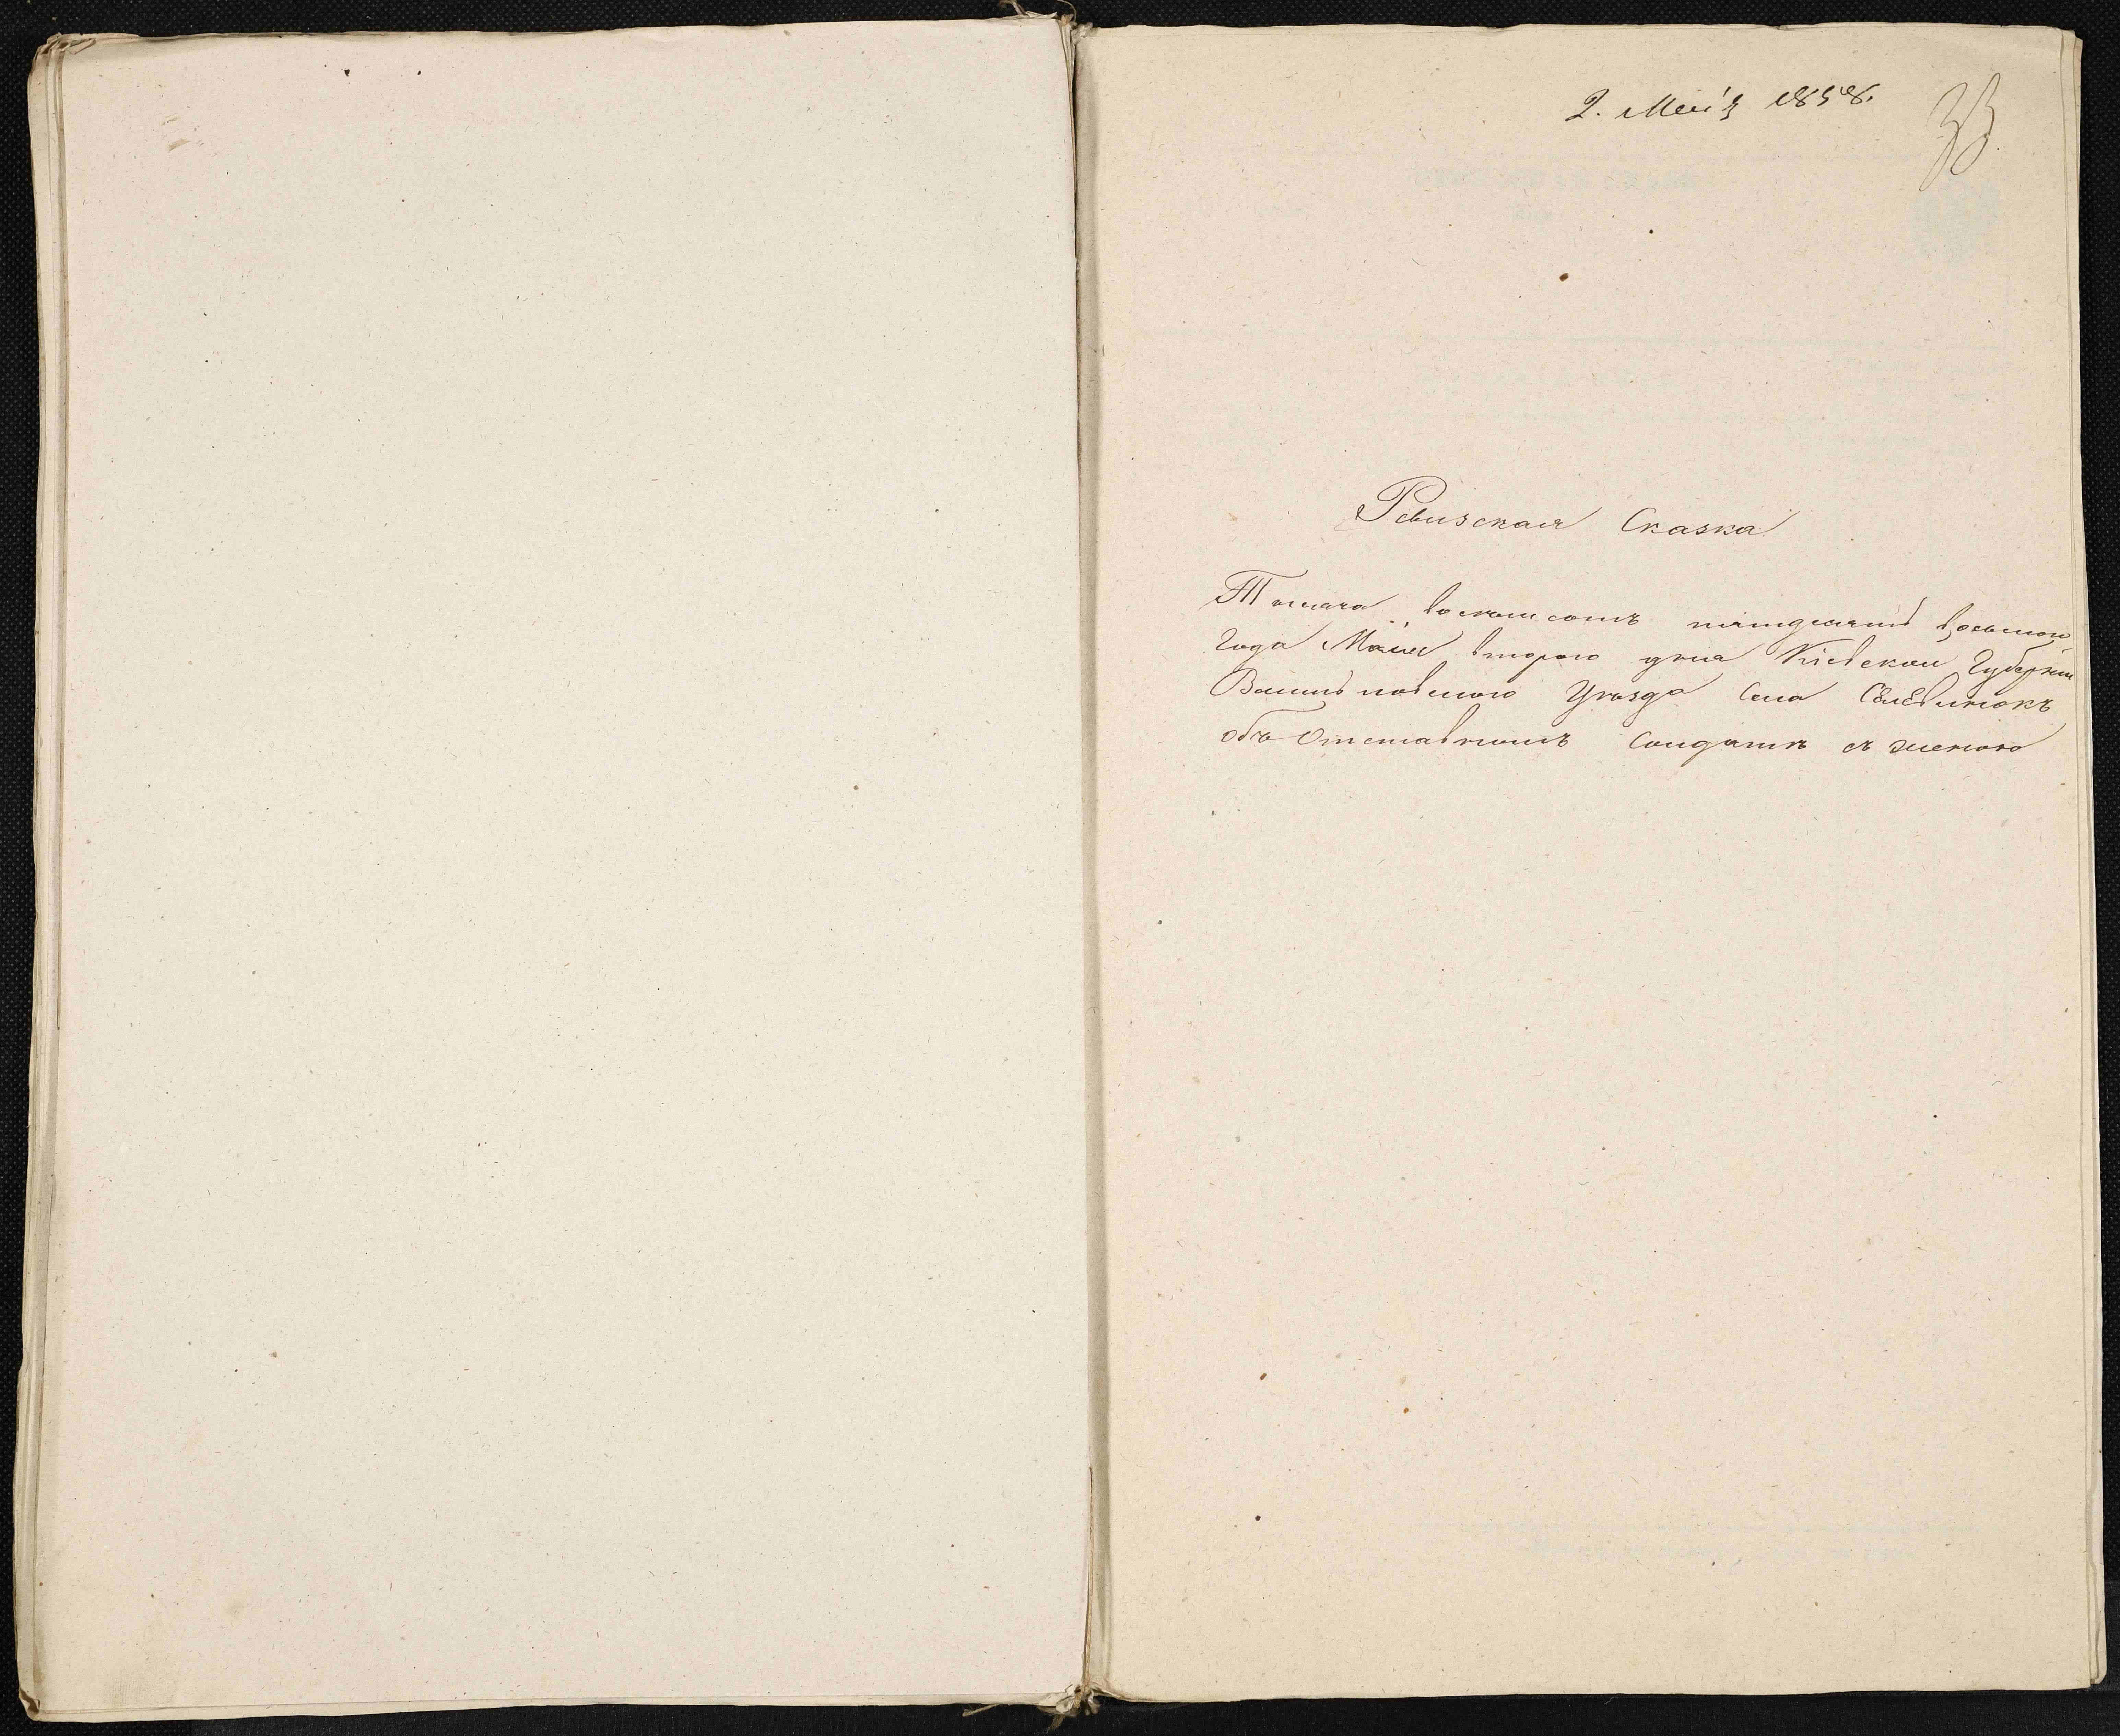 2. Маія 1858.
33
Ревизская Сказка
Тысяча восемьсотъ пятдесятъ восьмого
Года Маія второго дня Кіевской Губерніи
Васильковского Уѣзда Села
объ Отставномъ Солдатѣ съ женою